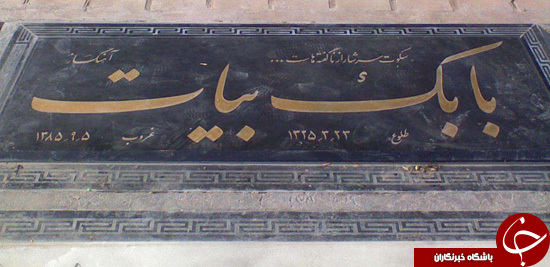 سکوت سرشار از ناگفته هاست ... آهنگساز
بابک بیات
طلوع ۱۳۲۵٫۳٫۲۳ غروب ۱۳۸۵٫۹٫۵
باشگاه خبرنگاران